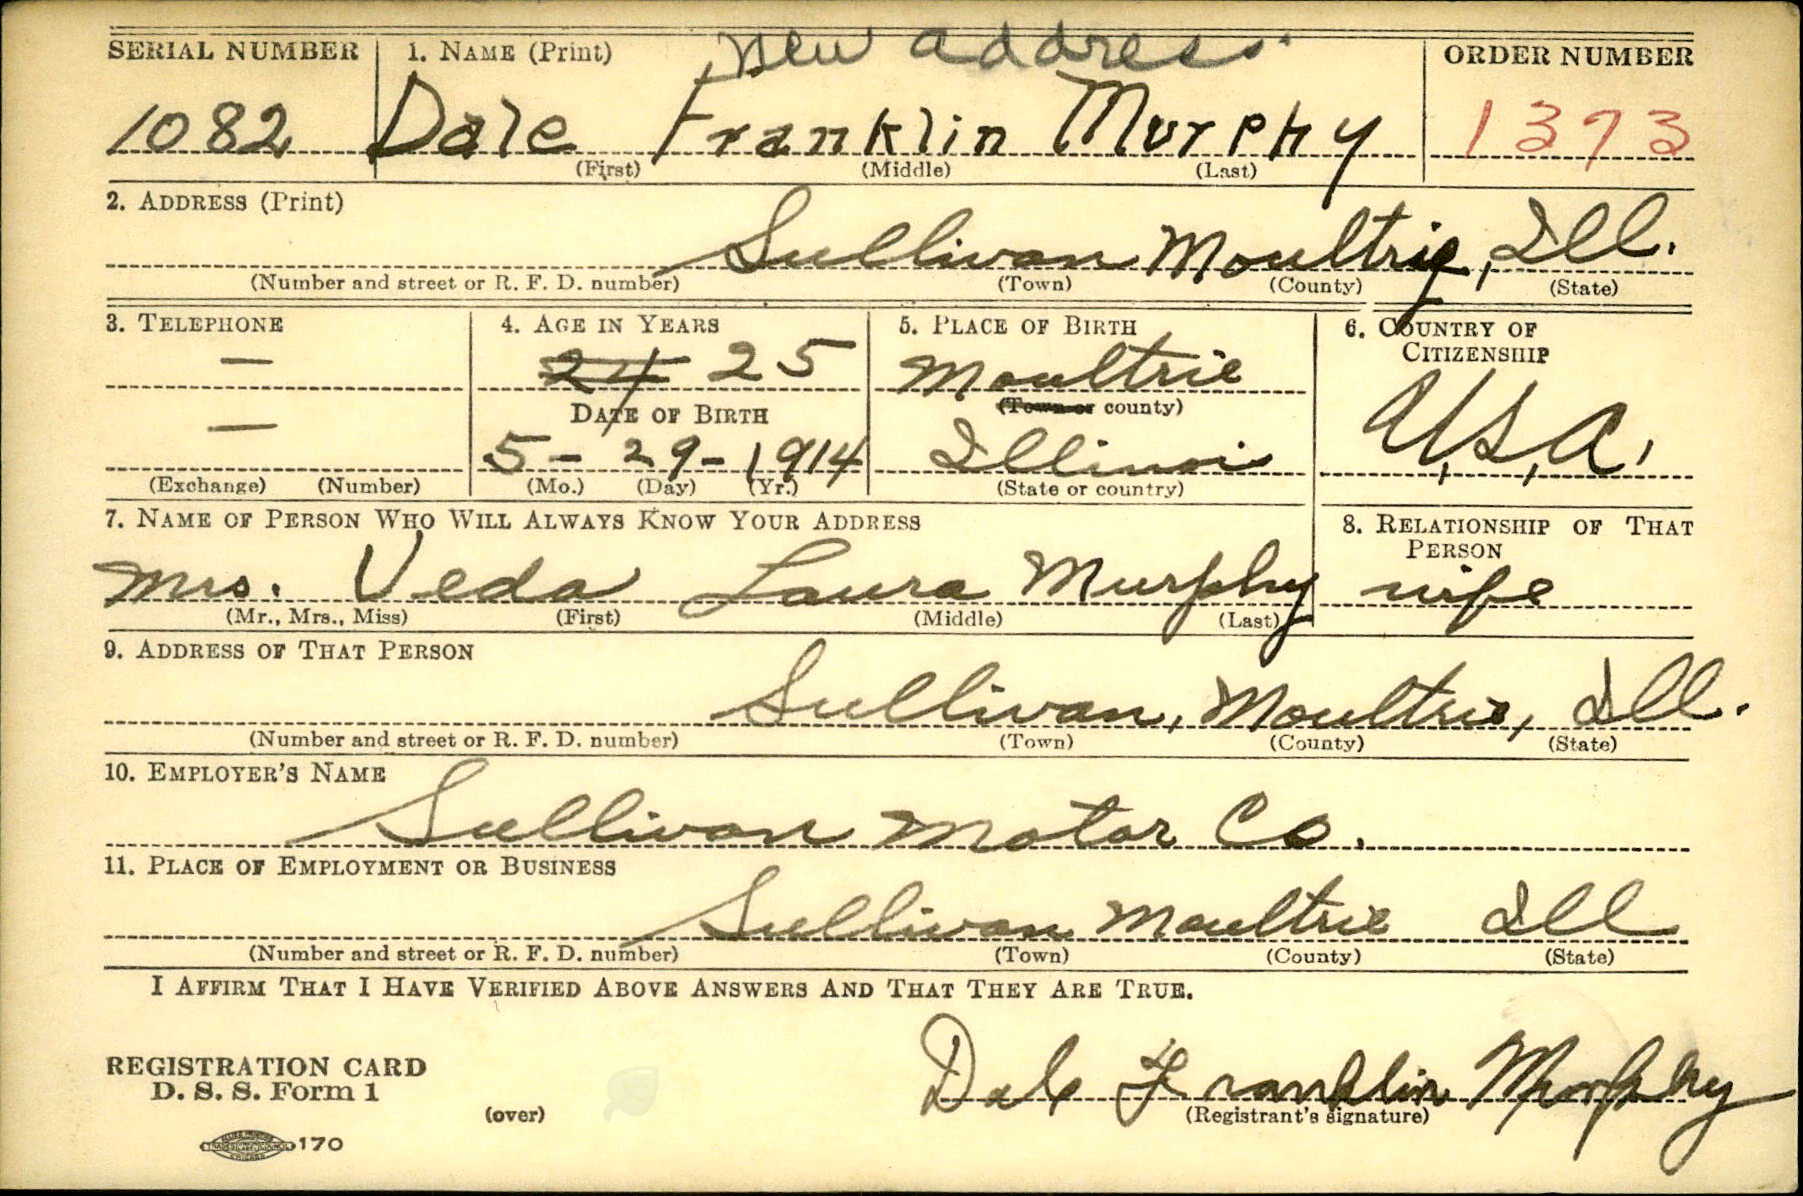 new address.
SERIAL NUMBER 1. NAME (Print) ORDER NUMBER
1082 Dale Franklin Murphy 1373
(First) (Middle) (Last)
2. ADDRESS (Print)
Sullivan Moultrie, Ill.
(Number and street or R. F. D. number) (Town) (County) (State)
3. TELEPHONE 4. AGE IN YEARS 5. PLACE OF BIRTH 6. COUNTRY OF CITIZENSHIP
— 24 25 Moultrie
(Town or county)
DATE OF BIRTH
— 5-29-1914 Illinois U.S.A.
(Exchange) (Number) (Mo.) (Day) (Yr.) (State or country)
7. NAME OF PERSON WHO WILL ALWAYS KNOW YOUR ADDRESS 8. RELATIONSHIP OF THAT PERSON
Mrs. Veda Laura Murphy wife
(Mr., Mrs., Miss) (First) (Middle) (Last)
9. ADDRESS OF THAT PERSON
Sullivan, Moultrie, Ill.
(Number and street or R. F. D. number) (Town) (County) (State)
10. EMPLOYER'S NAME
Sullivan Motor Co.
11. PLACE OF EMPLOYMENT OR BUSINESS
Sullivan Moultrie Ill
(Number and street or R. F. D. number) (Town) (County) (State)
I AFFIRM THAT I HAVE VERIFIED ABOVE ANSWERS AND THAT THEY ARE TRUE.
REGISTRATION CARD
D. S. S. Form 1
Dale Franklin Murphy
(over) (Registrant's signature)
170